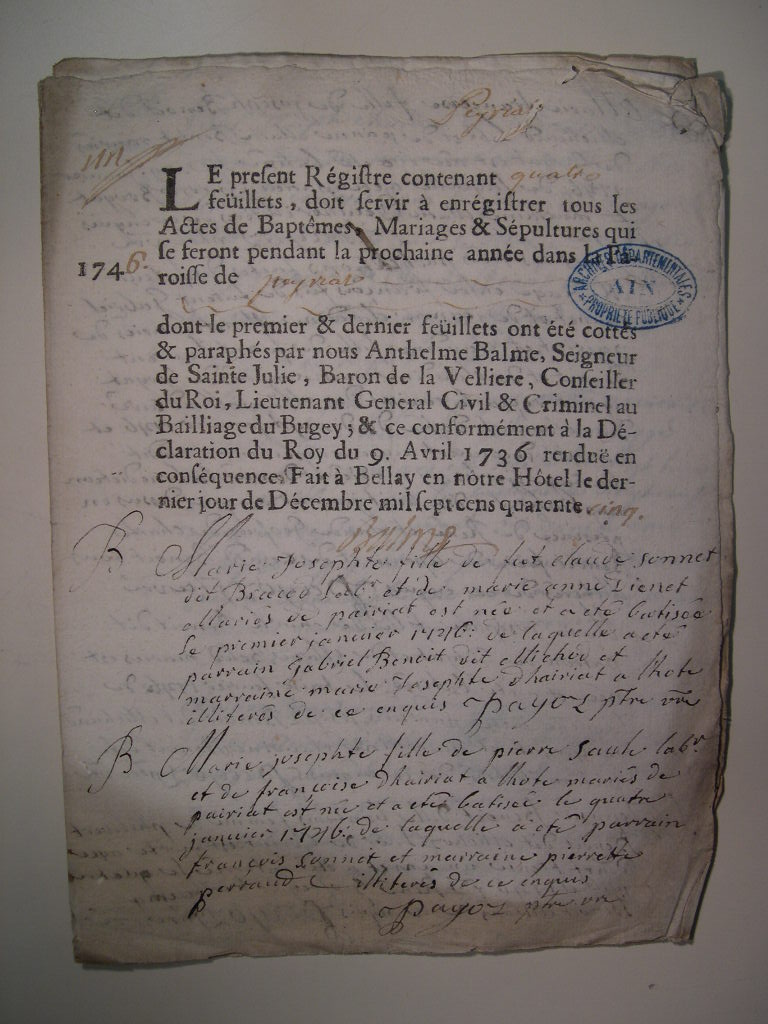 Peyriat
un
LE present Régistre contenant quatre
feüillets, doit servir à enrégistrer tous les
Actes de Baptêmes, Mariages & Sépultures qui
se feront pendant la prochaine année dans la Pa-
1746.
roisse de peyriat
ARCHIVES DÉPARTEMENTALES
AIN
PROPRIÉTÉ PUBLIQUE
dont le premier & dernier feüillets ont été cottés
& paraphés par nous Anthelme Balme, Seigneur
de Sainte Julie, Baron de la Velliere, Conseiller
du Roi, Lieutenant General Civil & Criminel au
Bailliage du Bugey; & ce conformément à la Dé-
claration du Roy du 9. Avril 1736. renduë en
conséquence. Fait à Bellay en nôtre Hôtel le der-
nier jour de Décembre mil sept cens quarente cinq.
B Marie Josephte fille de feu claude sonnet
dit labr et de marie anne
Mariés de pairiat est née et a eté batisée
le premier janvier 1746: de laquelle a eté
parrain Gabriel Benoit dit Michou et
marraine marie Josephte dhairiat a lhote
illiterés de ce enquis Payol ptre vre
B Marie josephte fille de pierre saule labr
et de francoise dhairiat a lhote mariés de
pairiat est née et a eté batisée le quatre
janvier 1746. de laquelle a eté parrain
francois sonnet et marraine pierrette
perraud illiterés de ce enquis
Payol ptre vre